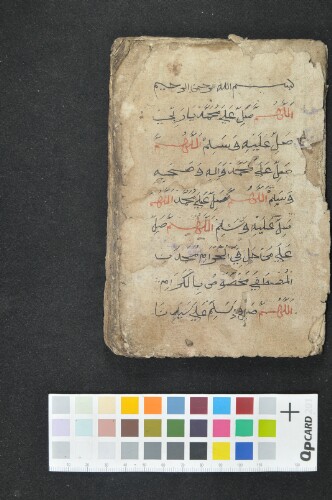 بسم الله الرحمن الرحيم
اللهم صل على محمد يا رب
صل عليه وسلم اللهم
صل على محمد وآله وصحبه
وسلم اللهم صل على محمد اللهم
صل عليه وسلم اللهم صل
على من حل في الحرم محمد
المصطفى مخصوص بالكرم
اللهم صل وسلم على سيدنا
QPCARD